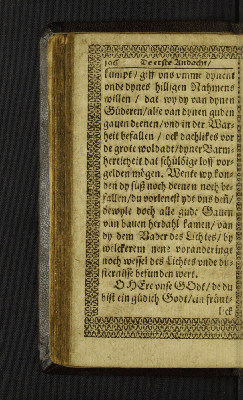 106 De erste Andacht/
kumpt/ giff vns vmme dynent
vnde dynes hilligen Nahmens
willen / dat wy dy van dynen
Güderen/ alse van dynen guden
gauen deenen/ vnd in der War-
heit befallen / ock dachlikes vor
de grote woldadt/ dyner Barm-
herticheit dat schüldige loff vor-
gelden mögen. Wente wy kon-
den dy süß noch deenen noch be-
fallen/ du vorlenest ydt vns den/
dewyle doch alle gude Gauen
van bauen herdahl kamen/ van
dy dem Vader des Lichtes / by
wilckerem nene voranderinge
noch wessel des Lichtes vnde dü-
sternisse befunden wert.
O HEre vnse GOdt/ de du
bist ein güdich Godt/ ein fründt-
lick